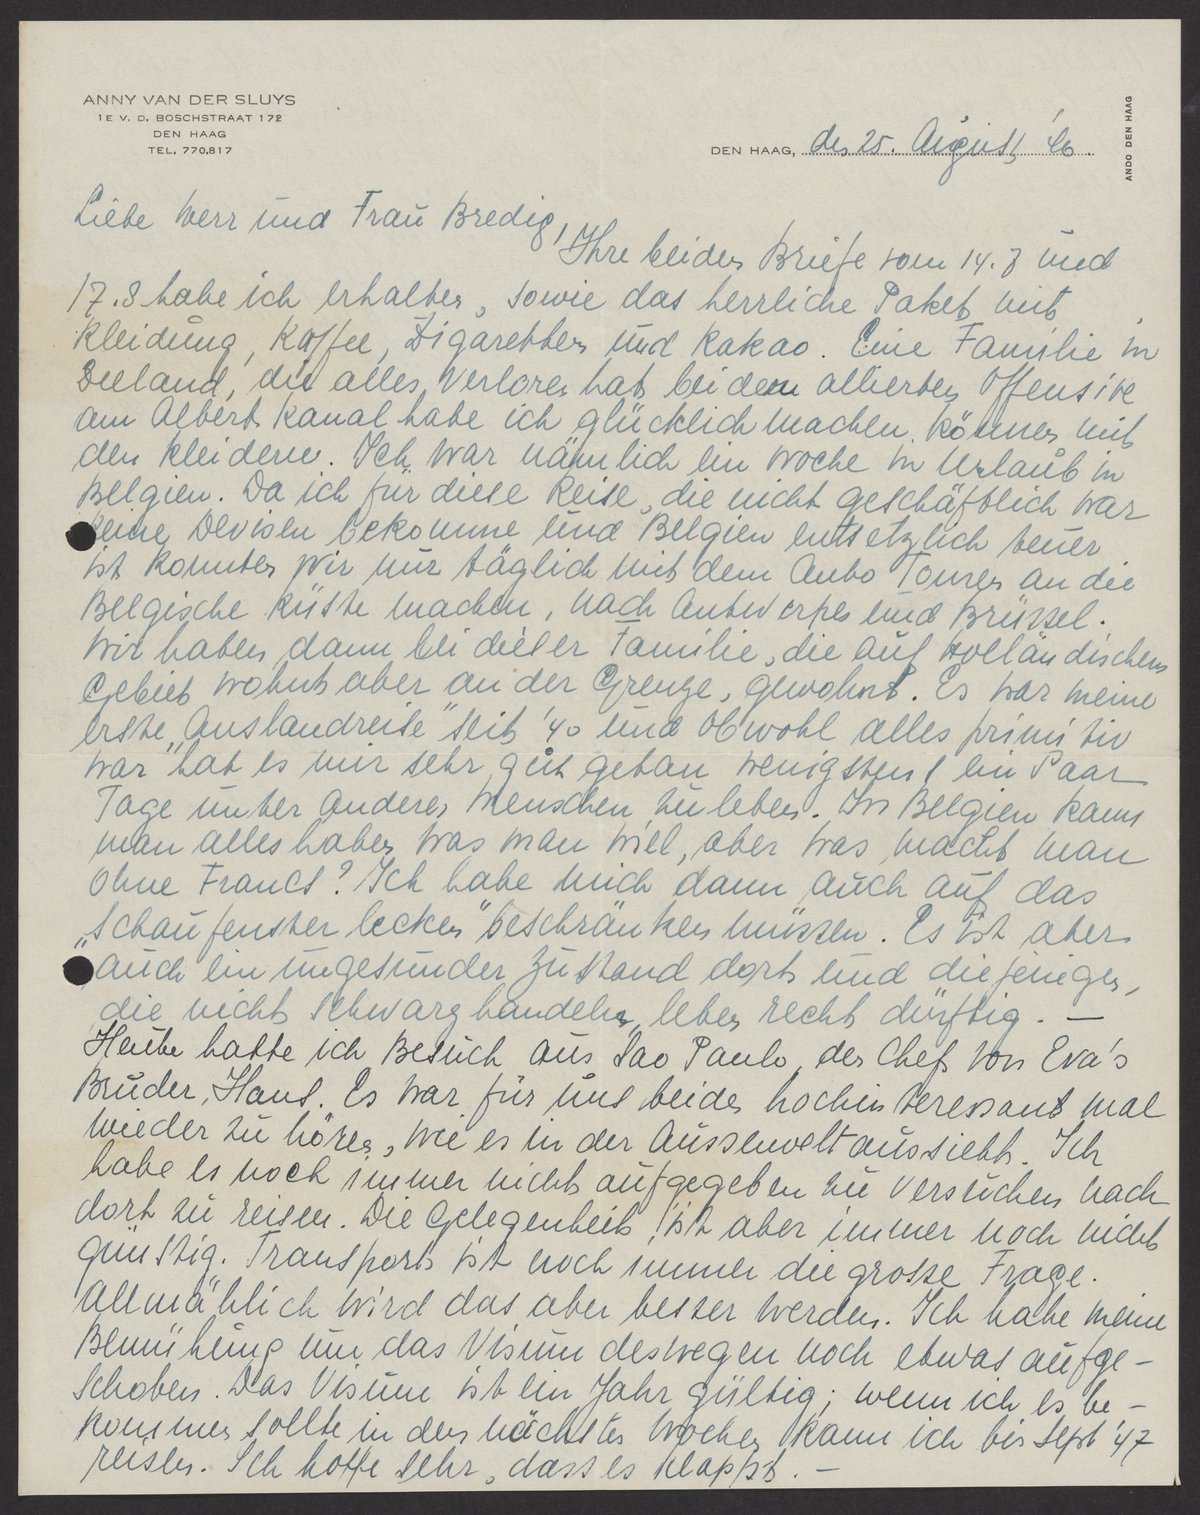 ANNY VAN DER SLUYS
1E V. D. BOSCHSTRAAT 172
DEN HAAG
TEL. 770.817
DEN HAAG, den 25. August '46.
ANDO DEN HAAG
Liebe Herr und Frau Bredig,
Ihre beiden Briefe vom 14.8 und
17.8 habe ich erhalten, sowie das herrliche Paket mit
Kleidung, Kaffee, Zigaretten und Kakao. Eine Familie in
Zeeland, die alles verloren hat bei den allierten Offensive
am Albert Kanal habe ich glücklich machen können mit
den Kleidern. Ich war nämlich ein Woche in Urlaub in
Belgien. Da ich für diese Reise, die nicht geschäftlich war
keine Devisen bekomme und Belgien entsetzlich teuer
ist konnten wir nur täglich mit dem Auto Touren an die
Belgische Küste machen, nach Antwerpen und Brüssel.
Wir haben dann bei dieser Familie, die auf Holländischem
Gebiet wohnt aber an der Grenze, gewohnt. Es war meine
erste „Auslandreise" seit '40 und obwohl alles primitiv
war hat es mir sehr gut getan wenigstens ein Paar
Tage unter anderen Menschen zu leben. In Belgien kann
man alles haben was man will, aber was macht man
ohne Francs? Ich habe mich dann auch auf das
„Schaufenster lecken" beschränken müssen. Es ist aber
auch ein ungesunder Zustand dort und diejenigen,
die nicht schwarzhandeln, leben recht dürftig. —
Heute hatte ich Besuch aus Sao Paulo, der Chef von Eva's
Bruder, Hans. Es war für uns beiden hochinteressant mal
wieder zu hören, wie es in der Aussenwelt aussieht. Ich
habe es noch immer nicht aufgegeben zu versuchen nach
dort zu reisen. Die Gelegenheit ist aber immer noch nicht
günstig. Transport ist noch immer die grosse Frage.
Allmählich wird das aber besser werden. Ich habe meine
Bemühung um das Visum deswegen noch etwas aufge-
schoben. Das Visum ist ein Jahr gültig; wenn ich es be-
kommen sollte in den nächsten Wochen kann ich bis Sept '47
reisen. Ich hoffe sehr, dass es klappt. —